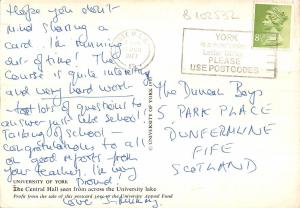 Hope you don't
mind sharing a
card. I'm running
out of time! The
Course is quite interesting
and very hard work-
lots of questions to
answer just like school!
Talking of school-
congratulations to all
on good reports from
your teacher. I'm very
Proud!
Love
B102532
YORK
PLEASE
USE POSTCODES
8½
The Duncan Boys
5 PARK PLACE
DUNFERMLINE
FIFE
SCOTLAND
© UNIVERSITY OF YORK
UNIVERSITY OF YORK
The Central Hall seen from across the University lake
Profit from the sale of this postcard goes to the University Appeal Fund